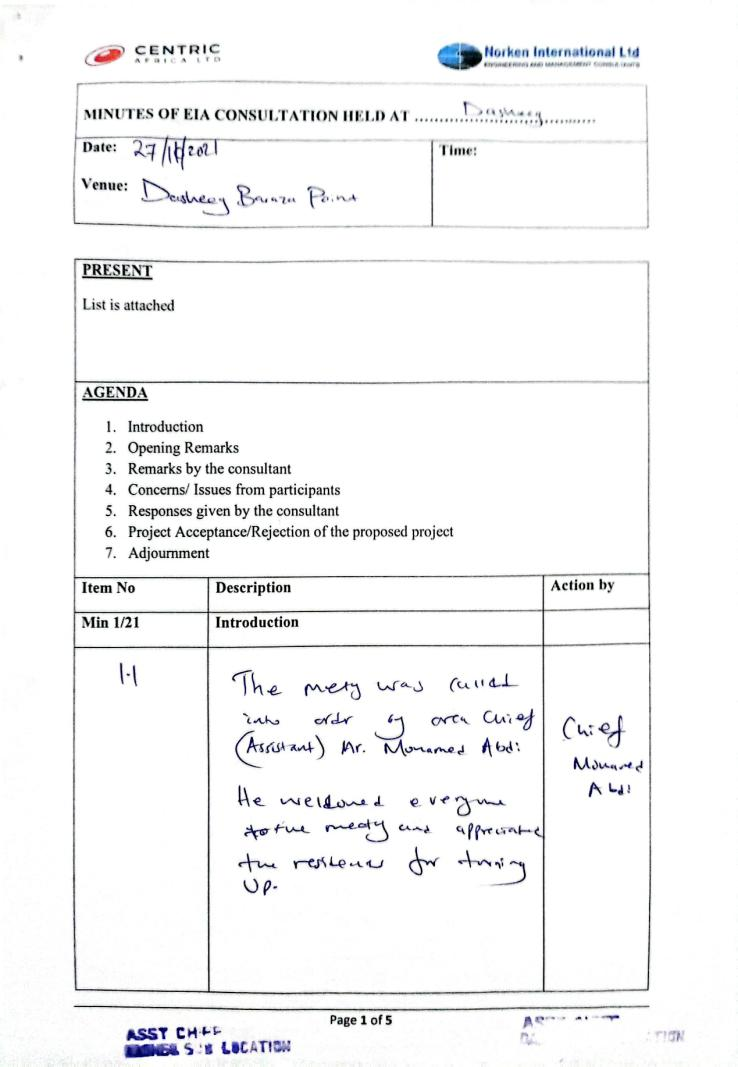 CENTRIC
AFRICA LTD
Norken International Ltd
ENGINEERING AND MANAGEMENT CONSULTANTS
MINUTES OF EIA CONSULTATION HELD AT .... Dasheeg ....
Date: 27/11/2021
Time:
Venue: Dasheeg Baraza Point
PRESENT
List is attached
AGENDA
1. Introduction
2. Opening Remarks
3. Remarks by the consultant
4. Concerns/ Issues from participants
5. Responses given by the consultant
6. Project Acceptance/Rejection of the proposed project
7. Adjournment
Item No Description Action by
Min 1/21 Introduction
1.1
The meetg was called
into order by area Chief
(Assistant) Mr. Mohamed Abdi
Chief
Mohamed
Abdi
He welcomed everyone
to the meetg and appreciated
the residents for turning
Up.
Page 1 of 5
ASST CHIEF
SUB LOCATION